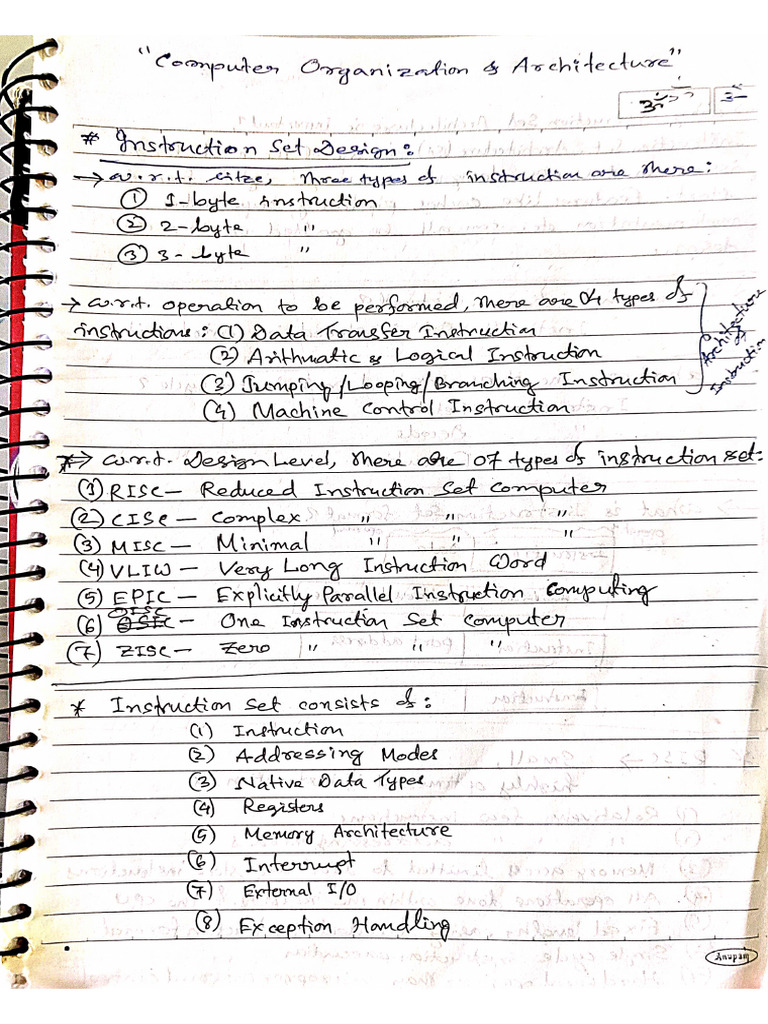 "Computer Organization & Architecture"
* Instruction Set Design:
→ w.r.t. size, three types of instruction are there:
(1) 1-byte instruction
(2) 2-byte "
(3) 3-byte "
→ w.r.t. operation to be performed, there are 04 types of
instructions: (1) Data Transfer Instruction
(2) Arithmatic & Logical Instruction
(3) Jumping/Looping/Branching Instruction
(4) Machine Control Instruction
Architecture
of
Instruction
*→ w.r.t. Design Level, there are 07 types of instruction set:
(1) RISC — Reduced Instruction Set Computer
(2) CISC — Complex " " "
(3) MISC — Minimal " " "
(4) VLIW — Very Long Instruction Word
(5) EPIC — Explicitly Parallel Instruction Computing
(6) OISC — One Instruction Set Computer
(7) ZISC — Zero " " "
* Instruction set consists of:
(1) Instruction
(2) Addressing Modes
(3) Native Data Types
(4) Registers
(5) Memory Architecture
(6) Interrupt
(7) External I/O
(8) Exception Handling
Anupam